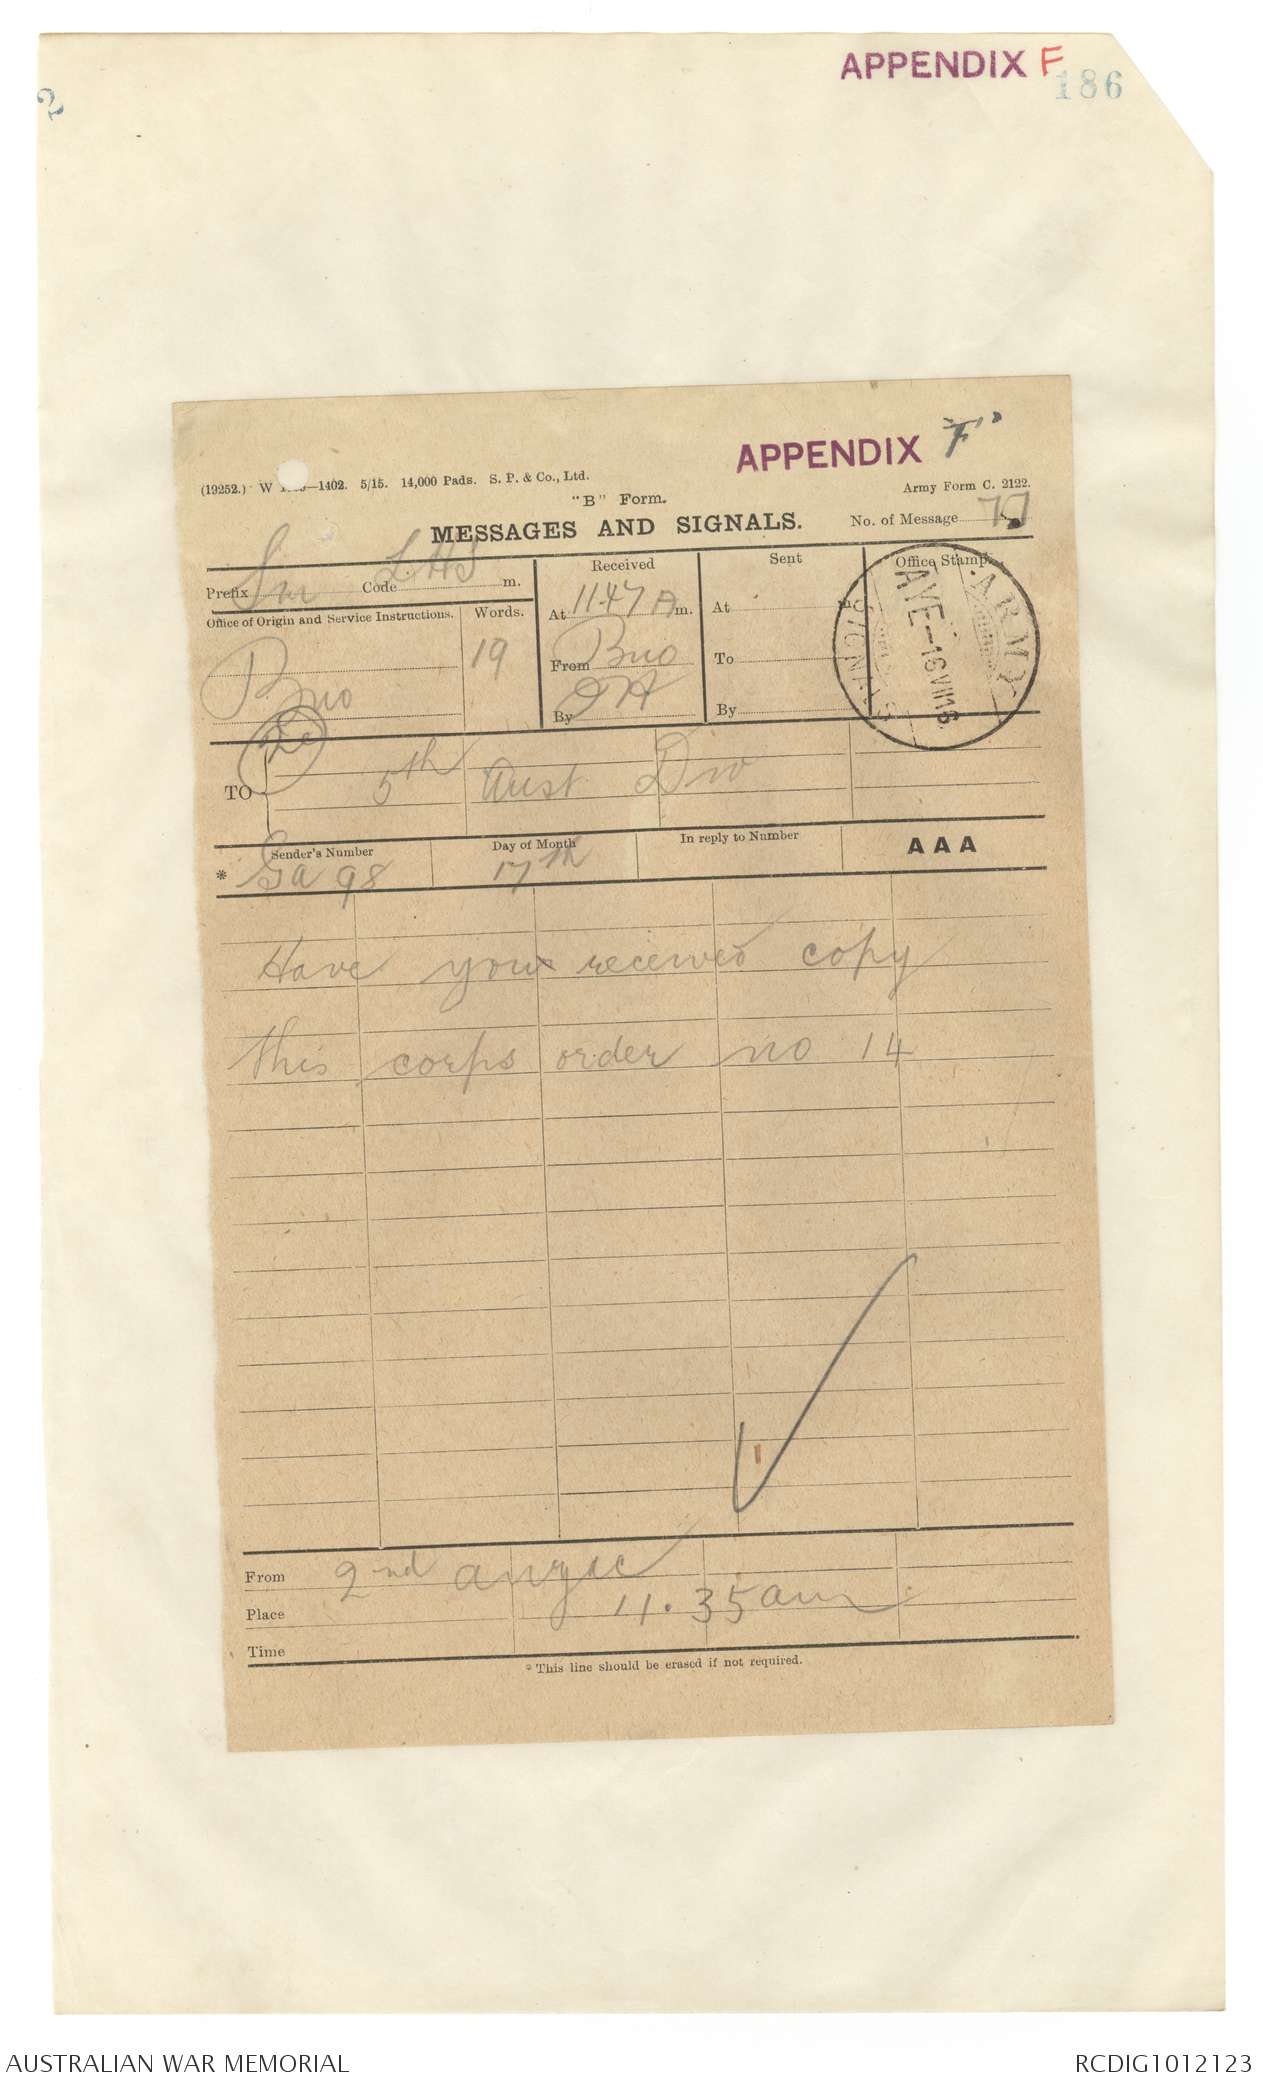 APPENDIX F
186
APPENDIX "F"
(19252.) W —1402. 5/15. 14,000 Pads. S. P. & Co., Ltd.
Army Form C. 2122.
"B" Form.
MESSAGES AND SIGNALS.
No. of Message 77
Prefix Sm Code LHS m.
Received
Sent
Office Stamp.
At 11.47 A m.
At m.
Office of Origin and Service Instructions.
Words.
Bno
19
From Bno
To
By
By
ARMY
AYE—16 VII 16
SIGNALS
TO 5th Aust Div
Sender's Number
Day of Month
In reply to Number
AAA
* Ga 98
17th
Have you received copy
this corps order no 14
From 2nd anzac
Place
11.35am
Time
* This line should be erased if not required.
AUSTRALIAN WAR MEMORIAL
RCDIG1012123